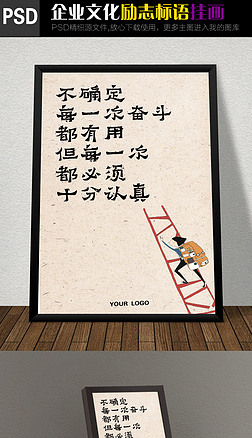 PSD
企业文化励志标语挂画
PSD精细源文件,放心下载使用，更多主图进入我的图库
不确定
每一次奋斗
都有用
但每一次
都必须
十分认真
YOUR LOGO
不确定
每一次奋斗
都有用
但每一次
都必须